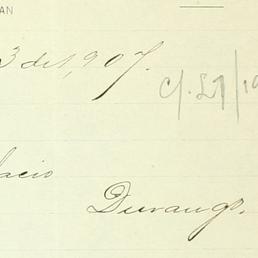 AN
3 de 1,907.
lacio
Durango.